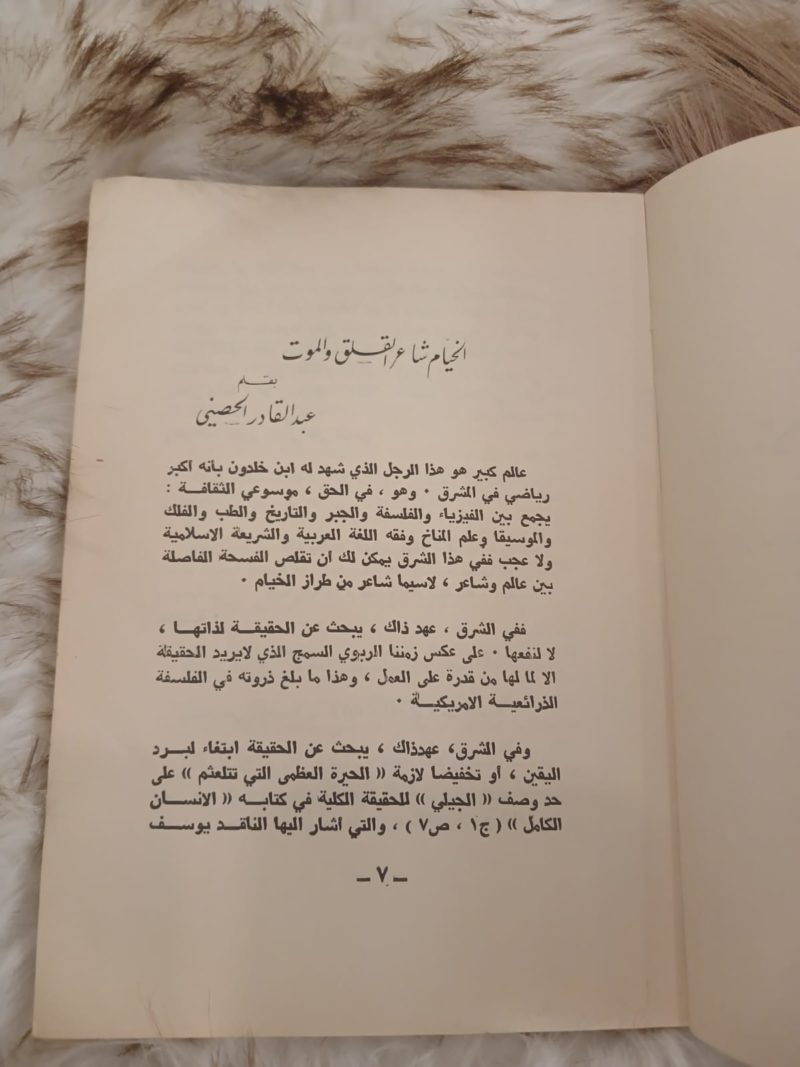 الخيام شاعر القلق والموت
بقلم
عبد القادر الحصيني
عالم كبير هو هذا الرجل الذي شهد له ابن خلدون بأنه أكبر
رياضي في المشرق ٠ وهو ، في الحق ، موسوعي الثقافة :
يجمع بين الفيزياء والفلسفة والجبر والتاريخ والطب والفلك
والموسيقا وعلم المناخ وفقه اللغة العربية والشريعة الاسلامية
ولا عجب ففي هذا الشرق يمكن لك ان تقلص الفسحة الفاصلة
بين عالم وشاعر ، لاسيما شاعر من طراز الخيام ٠
ففي الشرق ، عهد ذاك ، يبحث عن الحقيقة لذاتها ،
لا لنفعها ٠ على عكس زمننا الربوي السمج الذي لايريد الحقيقة
الا لما لها من قدرة على العمل ، وهذا ما بلغ ذروته في الفلسفة
الذرائعية الامريكية ٠
وفي الشرق، عهدذاك ، يبحث عن الحقيقة ابتغاء لبرد
اليقين ، أو تخفيضا لازمة « الحيرة العظمى التي تتلعثم » على
حد وصف « الجيلي » للحقيقة الكلية في كتابه « الانسان
الكامل » ( ج١ ، ص٧ ) ، والتي اشار اليها الناقد يوسف
ــ ٧ ــ